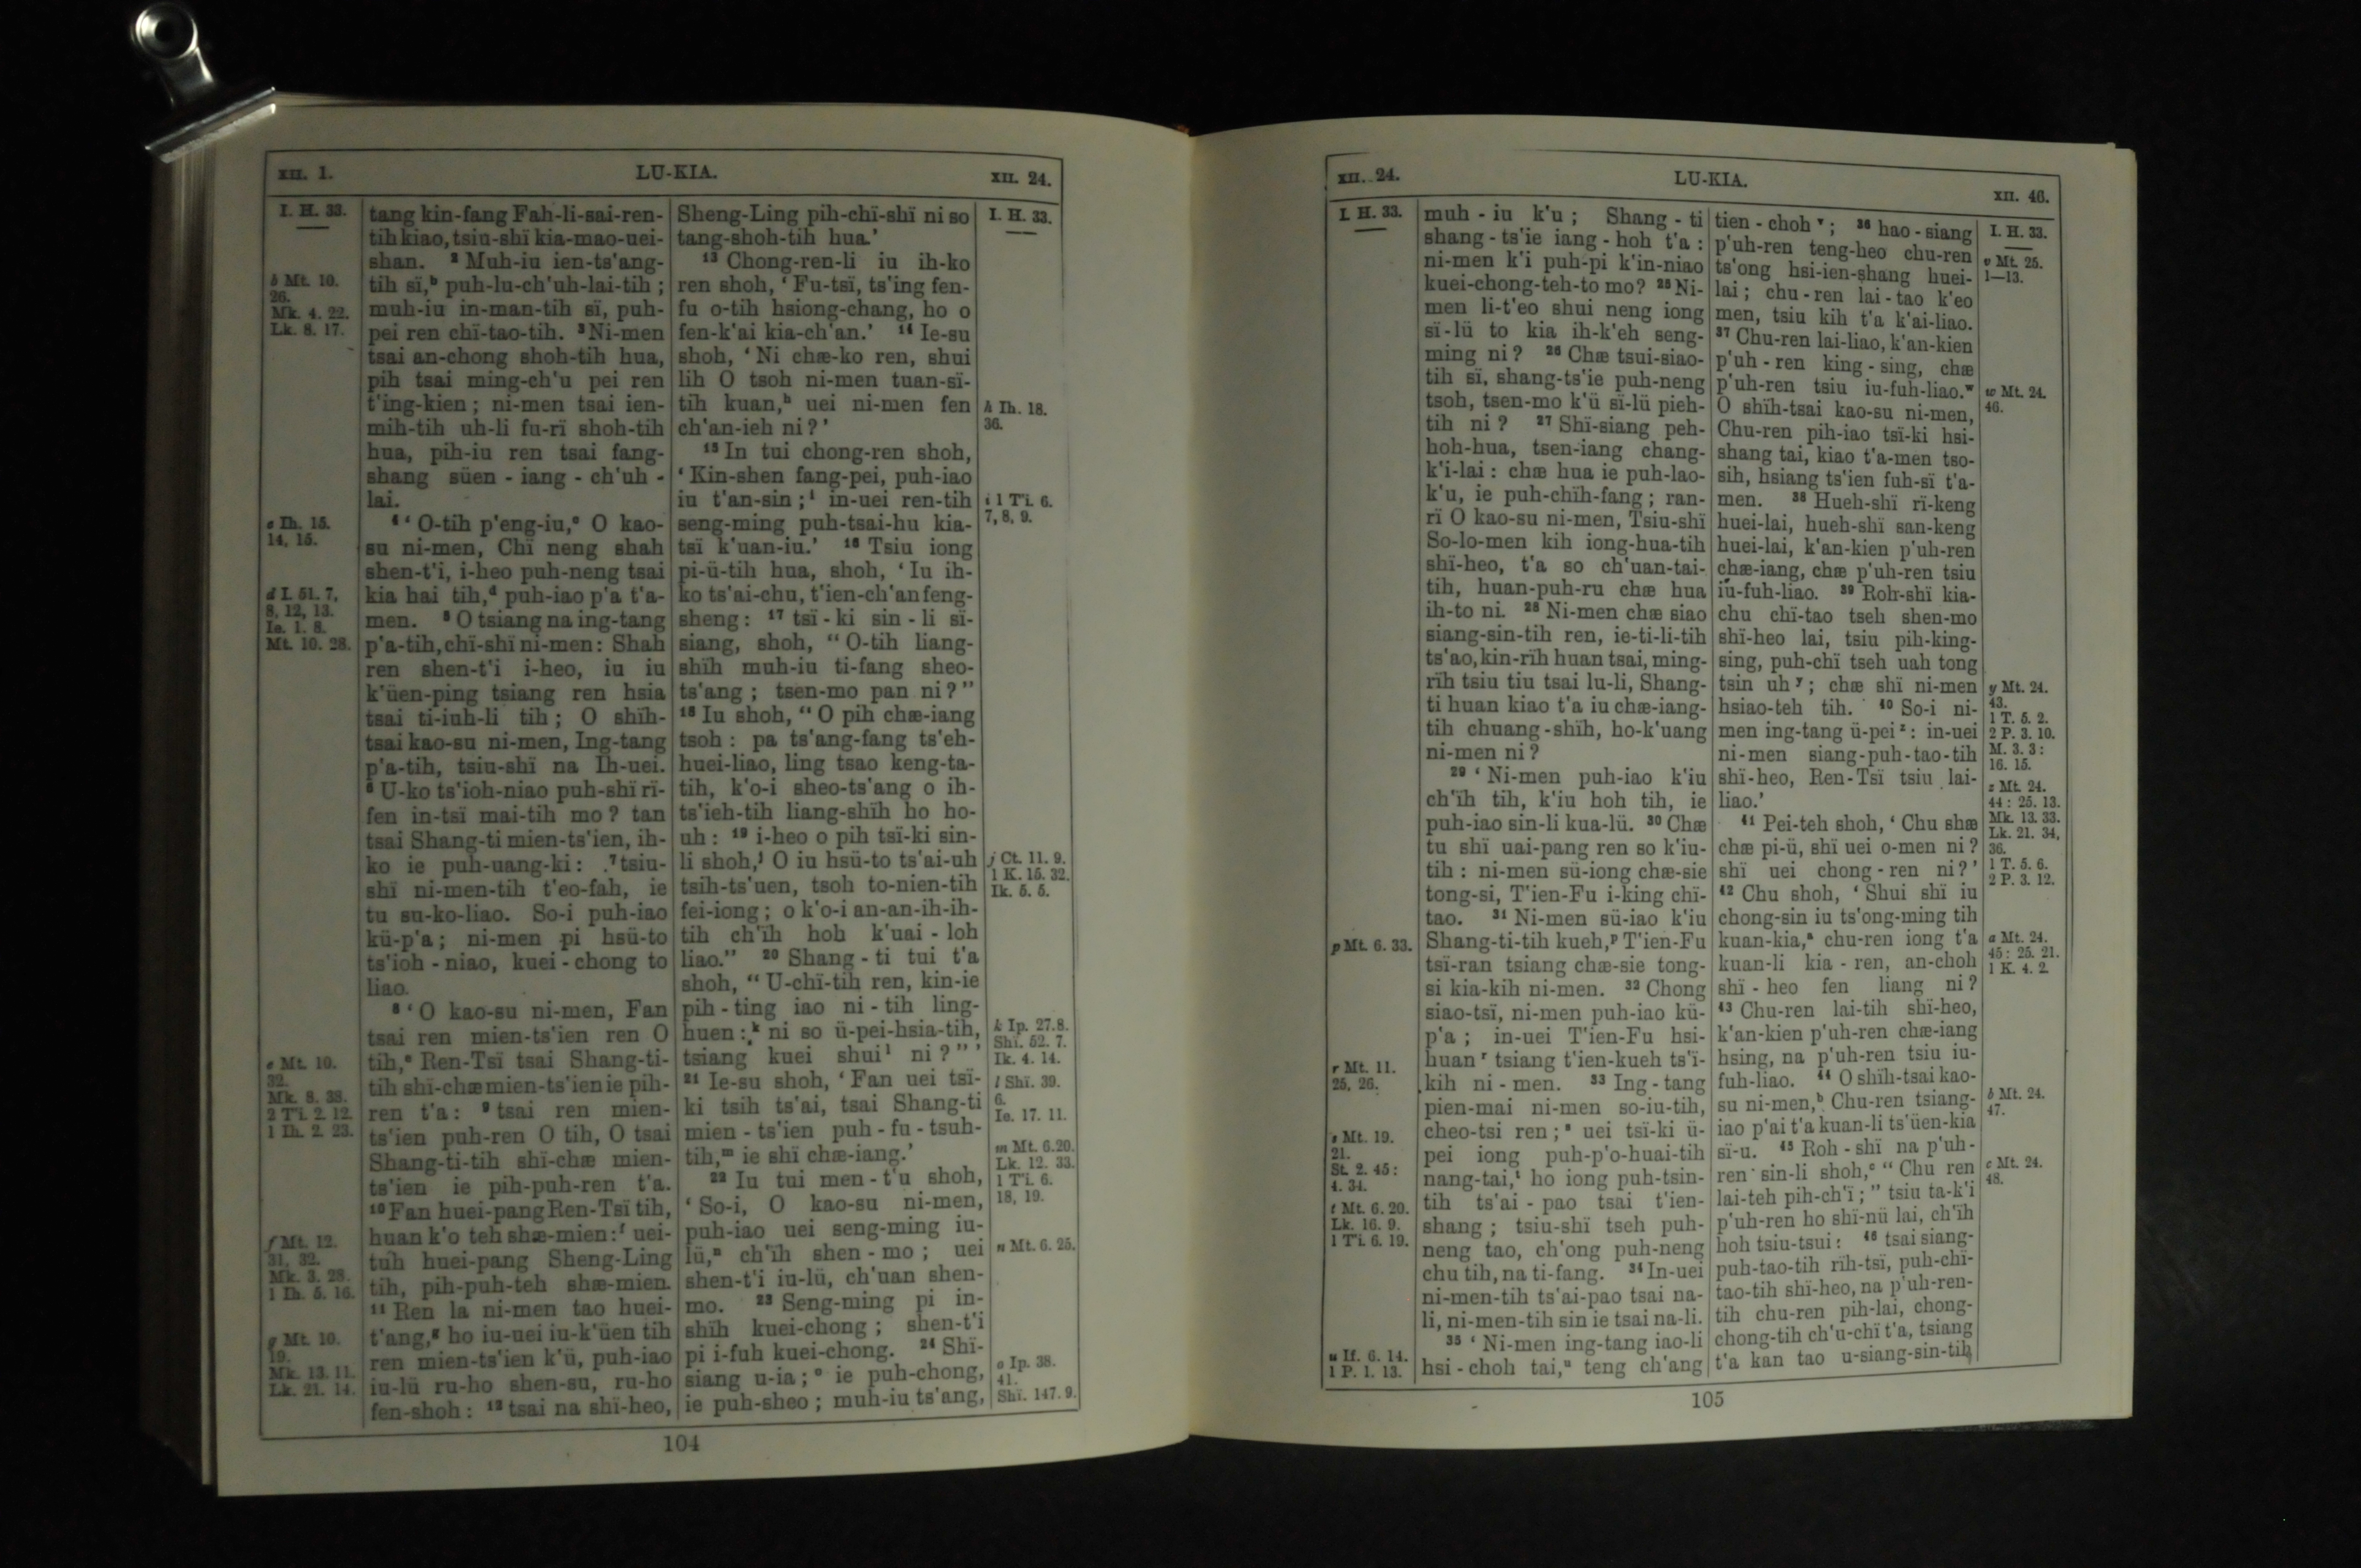 XII. 1.
LU-KIA.
XII. 24.
I. H. 33.
b Mt. 10.
26.
Mk. 4. 22.
Lk. 8. 17.
c Ih. 15.
14, 15.
d I. 51. 7,
8, 12, 13.
Ie. 1. 8.
Mt. 10. 28.
e Mt. 10.
32.
Mk. 8. 38.
2 T'i. 2. 12.
1 Ih. 2. 23.
f Mt. 12.
31, 32.
Mk. 3. 28.
1 Ih. 5. 16.
g Mt. 10.
19.
Mk. 13. 11.
Lk. 21. 14.
tang kin-fang Fah-li-sai-ren-
tih kiao, tsiu-shï kia-mao-uei-
shan. 2 Muh-iu ien-ts'ang-
tih sï,b puh-lu-ch'uh-lai-tih ;
muh-iu in-man-tih sï, puh-
pei ren chï-tao-tih. 3 Ni-men
tsai an-chong shoh-tih hua,
pih tsai ming-ch'u pei ren
t'ing-kien ; ni-men tsai ien-
mih-tih uh-li fu-rï shoh-tih
hua, pih-iu ren tsai fang-
shang süen - iang - ch'uh -
lai.
4 ' O-tih p'eng-iu,c O kao-
su ni-men, Chï neng shah
shen-t'i, i-heo puh-neng tsai
kia hai tih,d puh-iao p'a t'a-
men. 5 O tsiang na ing-tang
p'a-tih, chï-shï ni-men: Shah
ren shen-t'i i-heo, iu iu
k'üen-ping tsiang ren hsia
tsai ti-iuh-li tih ; O shïh-
tsai kao-su ni-men, Ing-tang
p'a-tih, tsiu-shï na Ih-uei.
6 U-ko ts'ioh-niao puh-shï rï-
fen in-tsï mai-tih mo ? tan
tsai Shang-ti mien-ts'ien, ih-
ko ie puh-uang-ki : 7 tsiu-
shï ni-men-tih t'eo-fah, ie
tu su-ko-liao. So-i puh-iao
kü-p'a ; ni-men pi hsü-to
ts'ioh - niao, kuei - chong to
liao.
8 ' O kao-su ni-men, Fan
tsai ren mien-ts'ien ren O
tih,e Ren-Tsï tsai Shang-ti-
tih shï-chæ mien-ts'ien ie pih-
ren t'a : 9 tsai ren mien-
ts'ien puh-ren O tih, O tsai
Shang-ti-tih shï-chæ mien-
ts'ien ie pih-puh-ren t'a.
10 Fan huei-pang Ren-Tsï tih,
huan k'o teh shæ-mien :f uei-
tuh huei-pang Sheng-Ling
tih, pih-puh-teh shæ-mien.
11 Ren la ni-men tao huei-
t'ang,g ho iu-uei iu-k'üen tih
ren mien-ts'ien k'ü, puh-iao
iu-lü ru-ho shen-su, ru-ho
fen-shoh : 12 tsai na shï-heo,
Sheng-Ling pih-chï-shï ni so
tang-shoh-tih hua.'
13 Chong-ren-li iu ih-ko
ren shoh, ' Fu-tsï, ts'ing fen-
fu o-tih hsiong-chang, ho o
fen-k'ai kia-ch'an.' 14 Ie-su
shoh, ' Ni chæ-ko ren, shui
lih O tsoh ni-men tuan-sï-
tih kuan,h uei ni-men fen
ch'an-ieh ni ? '
15 In tui chong-ren shoh,
' Kin-shen fang-pei, puh-iao
iu t'an-sin ;i in-uei ren-tih
seng-ming puh-tsai-hu kia-
tsï k'uan-iu.' 16 Tsiu iong
pi-ü-tih hua, shoh, ' Iu ih-
ko ts'ai-chu, t'ien-ch'an feng-
sheng : 17 tsï - ki sin - li sï-
siang, shoh, " O-tih liang-
shïh muh-iu ti-fang sheo-
ts'ang ; tsen-mo pan ni ? "
18 Iu shoh, " O pih chæ-iang
tsoh : pa ts'ang-fang ts'eh-
huei-liao, ling tsao keng-ta-
tih, k'o-i sheo-ts'ang o ih-
ts'ieh-tih liang-shïh ho ho-
uh : 19 i-heo o pih tsï-ki sin-
li shoh,j O iu hsü-to ts'ai-uh
tsih-ts'uen, tsoh to-nien-tih
fei-iong ; o k'o-i an-an-ih-ih-
tih ch'ïh hoh k'uai - loh
liao." 20 Shang - ti tui t'a
shoh, " U-chï-tih ren, kin-ie
pih - ting iao ni - tih ling-
huen :k ni so ü-pei-hsia-tih,
tsiang kuei shuil ni ? " '
21 Ie-su shoh, ' Fan uei tsï-
ki tsih ts'ai, tsai Shang-ti
mien - ts'ien puh - fu - tsuh-
tih,m ie shï chæ-iang.'
22 Iu tui men - t'u shoh,
' So-i, O kao-su ni-men,
puh-iao uei seng-ming iu-
lü,n ch'ïh shen - mo ; uei
shen-t'i iu-lü, ch'uan shen-
mo. 23 Seng-ming pi in-
shïh kuei-chong ; shen-t'i
pi i-fuh kuei-chong. 24 Shï-
siang u-ia ;o ie puh-chong,
ie puh-sheo ; muh-iu ts'ang,
I. H. 33.
h Ih. 18.
36.
i 1 T'i. 6.
7, 8, 9.
j Ct. 11. 9.
1 K. 15. 32.
Ik. 5. 5.
k Ip. 27. 8.
Shï. 52. 7.
Ik. 4. 14.
l Shï. 39.
6.
Ie. 17. 11.
m Mt. 6. 20.
Lk. 12. 33.
1 T'i. 6.
18, 19.
n Mt. 6. 25.
o Ip. 38.
41.
Shï. 147. 9.
104
XII. 24.
LU-KIA.
XII. 46.
I. H. 33.
p Mt. 6. 33.
r Mt. 11.
25, 26.
s Mt. 19.
21.
St. 2. 45 :
4. 34.
t Mt. 6. 20.
Lk. 16. 9.
1 T'i. 6. 19.
u If. 6. 14.
1 P. 1. 13.
muh - iu k'u ; Shang - ti
shang - ts'ie iang - hoh t'a :
ni-men k'i puh-pi k'in-niao
kuei-chong-teh-to mo ? 25 Ni-
men li-t'eo shui neng iong
sï-lü to kia ih-k'eh seng-
ming ni ? 26 Chæ tsui-siao-
tih sï, shang-ts'ie puh-neng
tsoh, tsen-mo k'ü sï-lü pieh-
tih ni ? 27 Shï-siang peh-
hoh-hua, tsen-iang chang-
k'i-lai : chæ hua ie puh-lao-
k'u, ie puh-chïh-fang ; ran-
rï O kao-su ni-men, Tsiu-shï
So-lo-men kih iong-hua-tih
shï-heo, t'a so ch'uan-tai-
tih, huan-puh-ru chæ hua
ih-to ni. 28 Ni-men chæ siao
siang-sin-tih ren, ie-ti-li-tih
ts'ao, kin-rïh huan tsai, ming-
rïh tsiu tiu tsai lu-li, Shang-
ti huan kiao t'a iu chæ-iang-
tih chuang-shïh, ho-k'uang
ni-men ni ?
29 ' Ni-men puh-iao k'iu
ch'ïh tih, k'iu hoh tih, ie
puh-iao sin-li kua-lü. 30 Chæ
tu shï uai-pang ren so k'iu-
tih : ni-men sü-iong chæ-sie
tong-si, T'ien-Fu i-king chï-
tao. 31 Ni-men sü-iao k'iu
Shang-ti-tih kueh,p T'ien-Fu
tsï-ran tsiang chæ-sie tong-
si kia-kih ni-men. 32 Chong
siao-tsï, ni-men puh-iao kü-
p'a ; in-uei T'ien-Fu hsi-
huan r tsiang t'ien-kueh ts'ï-
kih ni - men. 33 Ing - tang
pien-mai ni-men so-iu-tih,
cheo-tsi ren ;s uei tsï-ki ü-
pei iong puh-p'o-huai-tih
nang-tai,t ho iong puh-tsin-
tih ts'ai - pao tsai t'ien-
shang ; tsiu-shï tseh puh-
neng tao, ch'ong puh-neng
chu tih, na ti-fang. 34 In-uei
ni-men-tih ts'ai-pao tsai na-
li, ni-men-tih sin ie tsai na-li.
35 ' Ni-men ing-tang iao-li
hsi - choh tai,u teng ch'ang
tien - choh v ; 36 hao - siang
p'uh-ren teng-heo chu-ren
ts'ong hsi-ien-shang huei-
lai ; chu - ren lai - tao k'eo
men, tsiu kih t'a k'ai-liao.
37 Chu-ren lai-liao, k'an-kien
p'uh - ren king - sing, chæ
p'uh-ren tsiu iu-fuh-liao.w
O shïh-tsai kao-su ni-men,
Chu-ren pih-iao tsï-ki hsi-
shang tai, kiao t'a-men tso-
sih, hsiang ts'ien fuh-sï t'a-
men. 38 Hueh-shï rï-keng
huei-lai, hueh-shï san-keng
huei-lai, k'an-kien p'uh-ren
chæ-iang, chæ p'uh-ren tsiu
iu-fuh-liao. 39 Roh-shï kia-
chu chï-tao tseh shen-mo
shï-heo lai, tsiu pih-king-
sing, puh-chï tseh uah tong
tsin uh y ; chæ shï ni-men
hsiao-teh tih. 40 So-i ni-
men ing-tang ü-pei z : in-uei
ni-men siang-puh-tao-tih
shï-heo, Ren-Tsï tsiu lai-
liao.'
41 Pei-teh shoh, ' Chu shæ
chæ pi-ü, shï uei o-men ni ?
shï uei chong - ren ni ? '
42 Chu shoh, ' Shui shï iu
chong-sin iu ts'ong-ming tih
kuan-kia,a chu-ren iong t'a
kuan-li kia - ren, an-choh
shï - heo fen liang ni ?
43 Chu-ren lai-tih shï-heo,
k'an-kien p'uh-ren chæ-iang
hsing, na p'uh-ren tsiu iu-
fuh-liao. 44 O shïh-tsai kao-
su ni-men,b Chu-ren tsiang-
iao p'ai t'a kuan-li ts'üen-kia
sï-u. 45 Roh - shï na p'uh-
ren sin-li shoh,c " Chu ren
lai-teh pih-ch'ï ; " tsiu ta-k'i
p'uh-ren ho shï-nü lai, ch'ïh
hoh tsiu-tsui : 46 tsai siang-
puh-tao-tih rïh-tsï, puh-chï-
tao-tih shï-heo, na p'uh-ren-
tih chu-ren pih-lai, chong-
chong-tih ch'u-chï t'a, tsiang
t'a kan tao u-siang-sin-tih
I. H. 33.
v Mt. 25.
1—13.
w Mt. 24.
46.
y Mt. 24.
43.
1 T. 5. 2.
2 P. 3. 10.
M. 3. 3 :
16. 15.
z Mt. 24.
44 : 25. 13.
Mk. 13. 33.
Lk. 21. 34,
36.
1 T. 5. 6.
2 P. 3. 12.
a Mt. 24.
45 : 25. 21.
1 K. 4. 2.
b Mt. 24.
47.
c Mt. 24.
48.
105